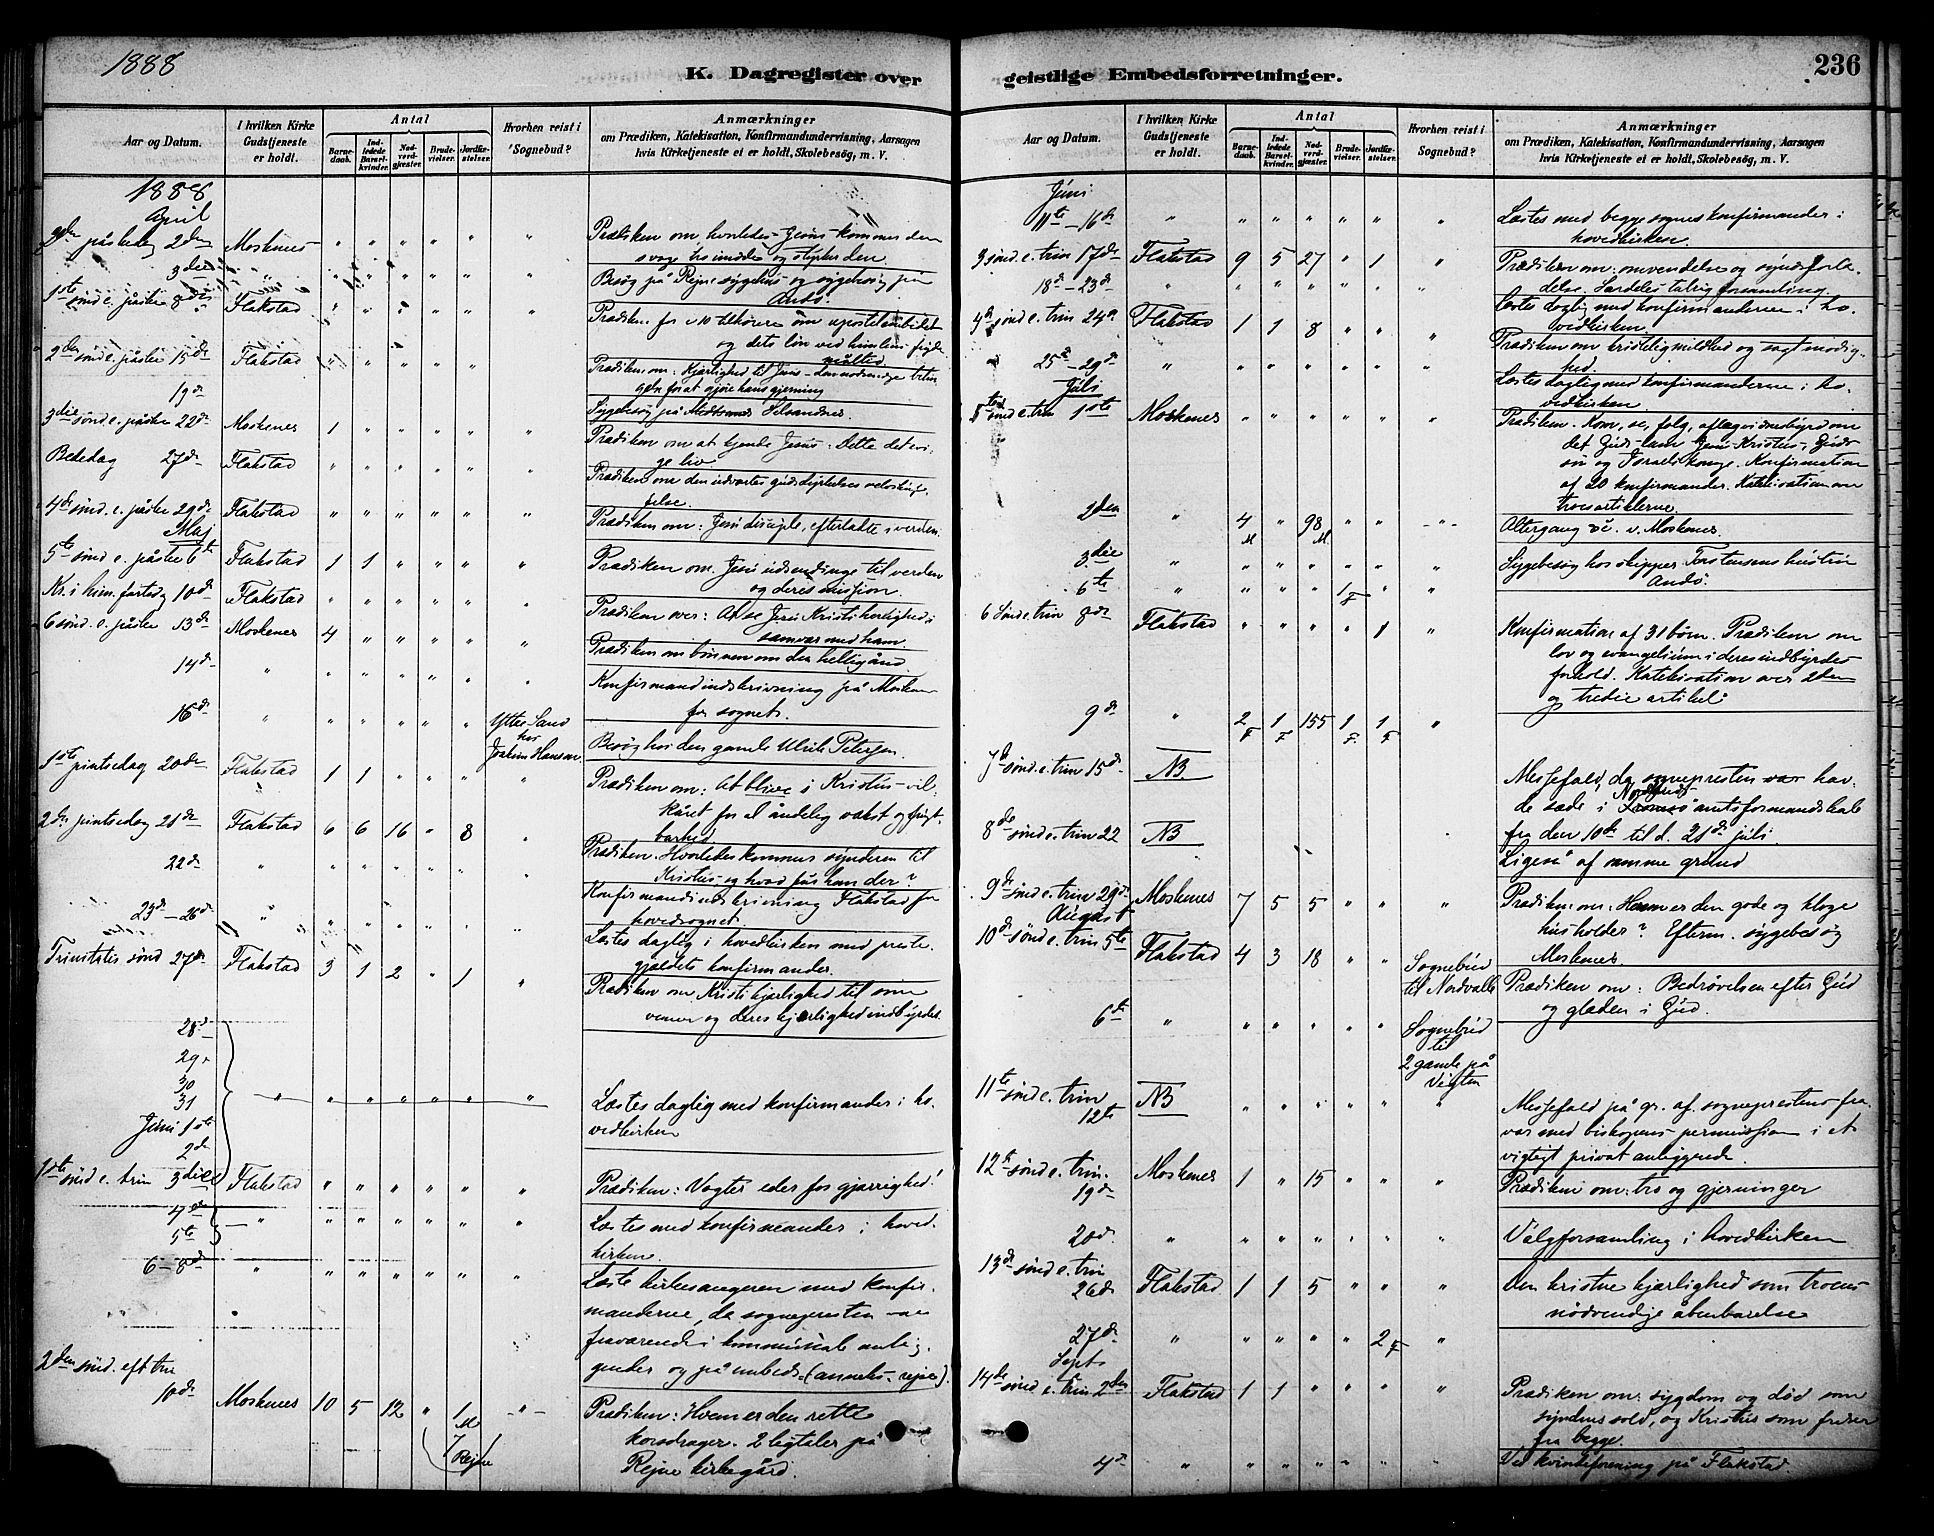 1888
K. Dagregister over
Aar og Datum.
I hvilken Kirke Gudstjeneste er holdt.
Antal
Barnedaab.
Indledede Barselkvinder.
Nadverdgjæster.
Brudevielser.
Jordfæstelser.
Hvorhen reist i Sognebud?
Anmærkninger
om Prædiken, Katekisation, Konfirmandundervisning, Aarsagen
hvis Kirketjeneste ei er holdt, Skolebesög, m. V.
1888
April
2den påskedag 2den Moskenes " " " " " " Prædiken om, hvorledes Jesus kommer den
svage tro imøde og styrker den
3die " " " " " " Besøg på Rejne sygehus og sygebesøg på
1ste sønd e. påske 8de Flakstad " " " " " " Prædiken for 10 tilhørere om apostelembedet
og dets løn ved himlens
2den sønd e. påske 15de Flakstad " " " " Prædiken om: Kjærlighed til Jesus – den nødvendige betin
gelse for at gjøre hans gjerning
19de Sygebesøg på
3die sønd e. påske 22de Moskenes 1 " " " " " Prædiken om at kjende Jesus: Dette det evi-
ge liv
Bededag 27de Flakstad " " " " " " Prædiken om den udvortes gudsdyrkelses
4de sønd. e. påske 29de Flakstad " " " " " " Prædiken om: Jesu disciple, efterladte i verden
Maj
5te sønd e. påske 6te Flakstad 1 1 " " " " Prædiken om. Jesu udsendinge til verden
og deres mission.
Kr. i him. fartsdg 10de Flakstad " " " " " " Prædiken over: At se Jesu Kristi herlighed i
samvær med ham.
6 sønd. e. påske 13de Moskenes 4 " " " " Prædiken om bønnen om den helligånd
14de " " " " " " Konfirmandindskrivning på Moskenes
for sognet.
16de " " " " " " Ytter Sand hos Joakim Hansen Besøg hos den gamle Ulrik Petersen
1ste pintsedag 20de Flakstad 1 1 " " " " Prædiken om: At blive i Kristus – vil-
kåret for al åndelig vækst og frugt-
barhed
2den pintsedag 21de Flakstad 6 6 16 " 8 " Prædiken. Hvorledes kommer synderen til
Kristus og hvad får han der?
22de " " " " " " Konfirmandindskrivning Flakstad for
hovedsognet
23de – 26de " " " " " Læstes daglig i hovedkirken med preste-
gjældets konfirmander.
Trinitatis sønd 27de Flakstad 3 1 2 " 1 " Prædiken om Kristi kjærlighed til sine
venner og deres kjærlighed indbyrdes.
28de
29
30
31
Juni 1ste
2de
" " " " " " " Læstes daglig med konfirmander i ho-
vedkirken
1ste sønd e. trin 3die Flakstad " " " " " " Prædiken: Vogter eder for gjærrighed!
4de
5te " " " " " " " Læstes med konfirmander i hoved-
kirken.
6–8de " " " " " " " Læste kirkesangeren med konfir-
manderne, da sognepresten var
fraværende i kommunale anlig-
gender og på embeds- (anneks-rejse).
2den sønd. eft trin
10de Moskenes 10 5 12 " 1 M " Prædiken: Hvem er den rette
korsdrager. 2 ligtaler på
Rejne kirkegård.
(1 Rejne
geistlige Embedsforretninger.
236
Aar og Datum.
I hvilken Kirke Gudstjeneste er holdt.
Antal
Barnedaab.
Indledede Barselkvinder.
Nadverdgjæster.
Brudevielser.
Jordfæstelser.
Hvorhen reist i Sognebud?
Anmærkninger
om Prædiken, Katekisation, Konfirmandundervisning, Aarsagen
hvis Kirketjeneste ei er holdt, Skolebesög, m. V.
Juni
11te – 16de " " " " " " " Læstes med begge sognes konfirmander i
hovedkirken.
3 sønd. e. trin 17de Flakstad 9 5 27 " 1 " Prædiken om: omvendelse og syndsforla-
delse. Særdeles talrig forsamling.
18de – 23de " " " " " " " Læstes daglig med konfirmanderne i ho-
vedkirken.
4de sønd e. trin 24de Flakstad 1 1 8 " " " Prædiken om kristelig mildhed og sagtmodig-
hed.
25de – 29de " " " " " " " Læstes daglig med konfirmanderne i ho-
vedkirken
Juli
5te sønd e. trin 1ste Moskenes " " " " " " Prædiken. Kom, se, følg, aflæg vidnesbyrd om
det Guds lam Jesu Kristus, Guds
søn og Israels konge. Konfirmation
af 20 konfirmander. Katekisation over
trosartiklerne.
2den " 4 M " 98 M " " " Altergang v. Moskenes.
3die " " " " " " " Sygebesøg hos skipper Torstensens hustru
Andø.
6te " " " " 1 F " "
6 Sønd e. trin 8de Flakstad " " " " 1 " Konfirmation af 31 børn. Prædiken om
lov og evangelium i deres indbyrdes
forhold. Katekisation over 2den
og tredie artikel
9de " 2 F 1 F 155 1 F. 1 F "
7de sønd. e. trin 15de NB Messefald, da sognepresten var hav-
de sæde i Tromsø Nordlands amtsformandskab
fra den 10de til d. 21de juli
8de sønd e. trin 22 NB Ligeså af samme grund
9de sønd e. trin 29de Moskenes 7 5 5 " " " Prædiken om: Hvem er den gode og kloge
husholder? Efterm. sygebesøg
Moskenes.
August
10de sønd e. trin 5te Flakstad 4 3 18 " " Sognebud til Nordvalle Prædiken om: Bedrøvelsen efter Gud
og glæden i Gud.
6te " " " " " " Sognebud til 2 gamle på Vigten
11te sønd e. trin
12te NB " " " " " " Messefald på gr. af. sogneprestens fra-
vær med biskopens permission i et
vigtigt privat anliggende.
12te sønd e. trin.
19de Moskenes 1 " 15 " " " Prædiken om: tro og gjerninger
20de " " " " " " " Valgforsamling i hovedkirken
13de sønd e. trin
26de Flakstad 1 1 5 " " " Den kristne kjærlighed som troens
nødvendige åbenbarelse
27de " " " " " 2 F "
Sept
14de sønd e. trin 2den Flakstad 1 1 " " " " Prædiken om: sygdom og død som
syndens sold, og Kristus som frelser
fra begge.
4de " " " " " " " Ved kvindeforening på Flakstad.